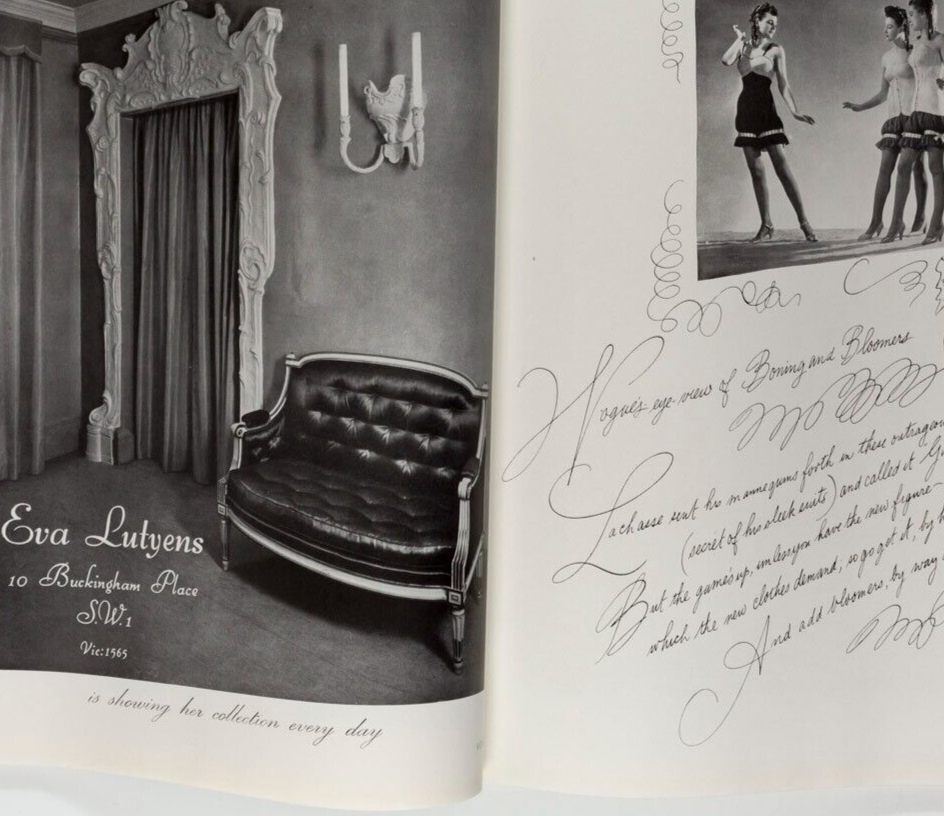 Eva Lutyens
10 Buckingham Place
S.W.1
Vic:1565
is showing her collection every day
Vogue's eye-view of Boning and Bloomers
Lachasse sent his mannequins forth in these outrageou
(secret of his sleek suits) and called it
But the game's up, unless you have the new figure
which the new clothes demand; so go get it, by
And add bloomers, by way